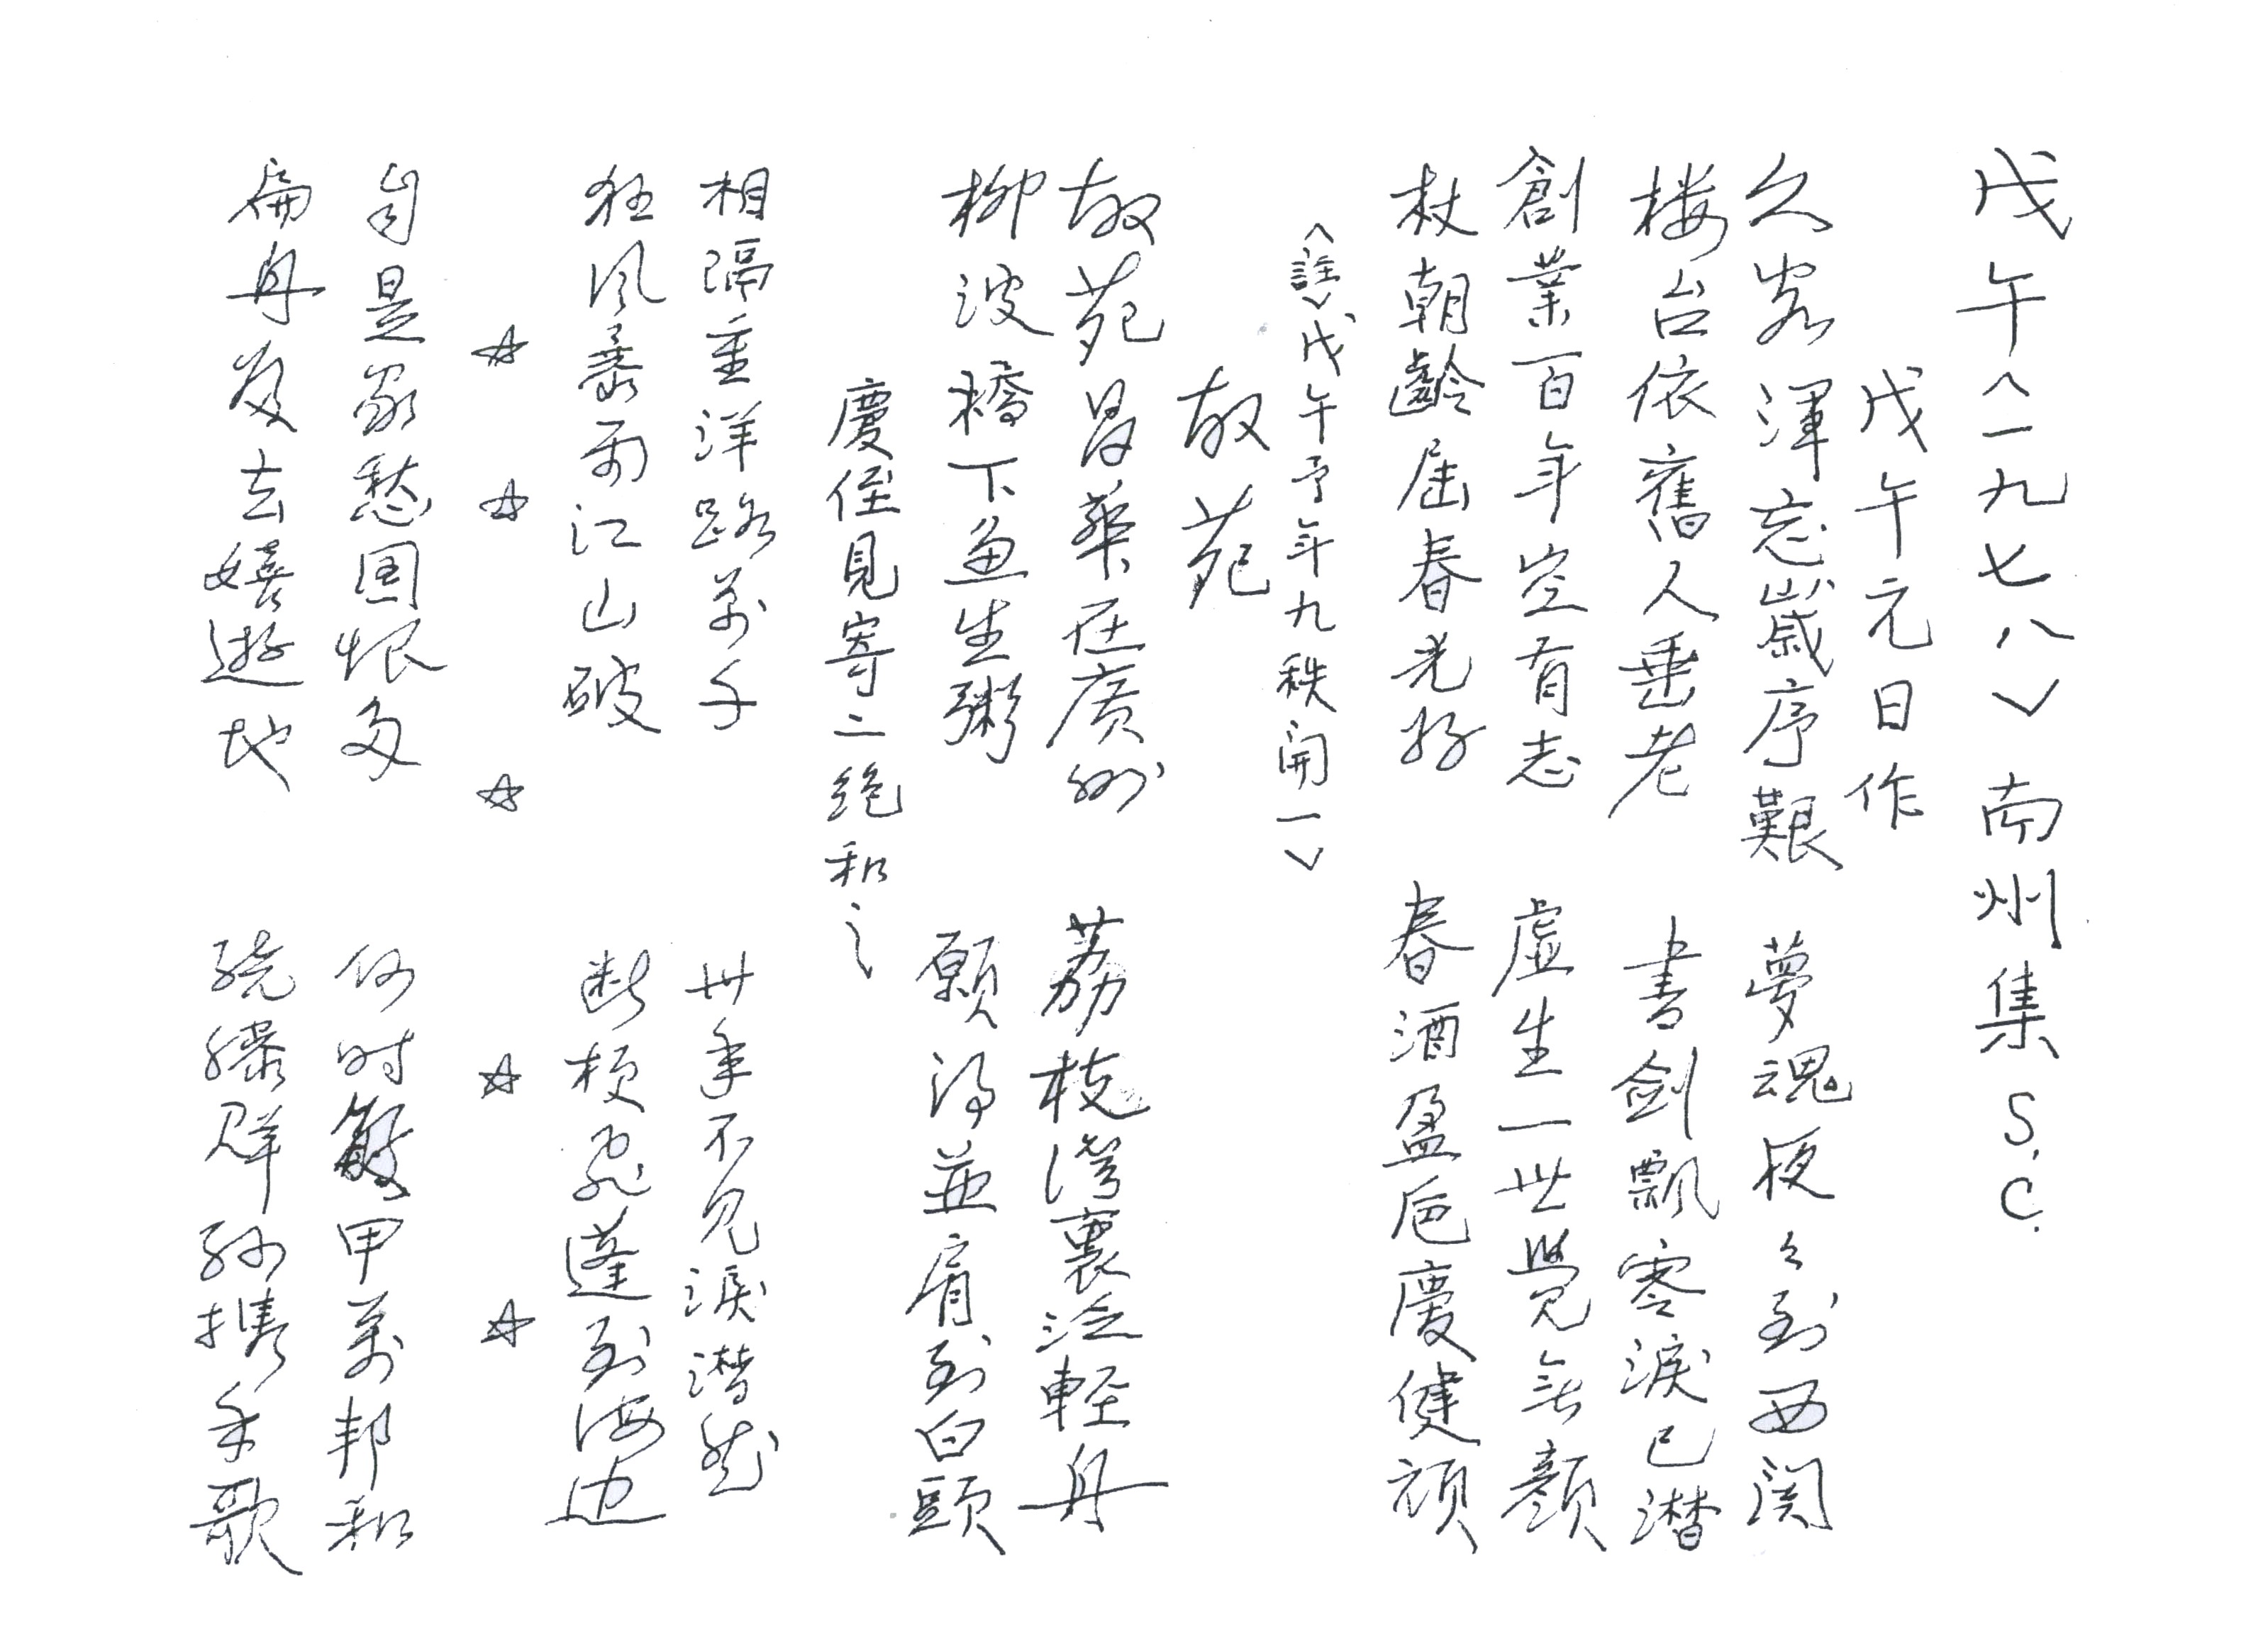 戊午︿一九七八﹀南州集 S.C.
戊午元日作
久客渾忘歲序艱 夢魂夜々到西関
楼台依舊人垂老 書劍飄零淚已潸
創業百年空有志 虛生一世覺無顏
杖朝齡屆春光好 春酒盈卮慶健頑
︿註﹀戊午予年九秩開一﹀
故苑
故苑昌華在廣州 荔枝灣裏泛輕舟
柳波橋下魚生粥 願得並肩到白頭
慶侄見寄二绝和之
相隔重洋路萬千 卅年不見淚潸然
狂风暴雨江山破 断梗飛蓬到海边
☆ ☆ ☆ ☆ ☆
自是家愁国恨多 何时甲萬邦和
扁舟去嬉遊地 繞膝群孙携手歌